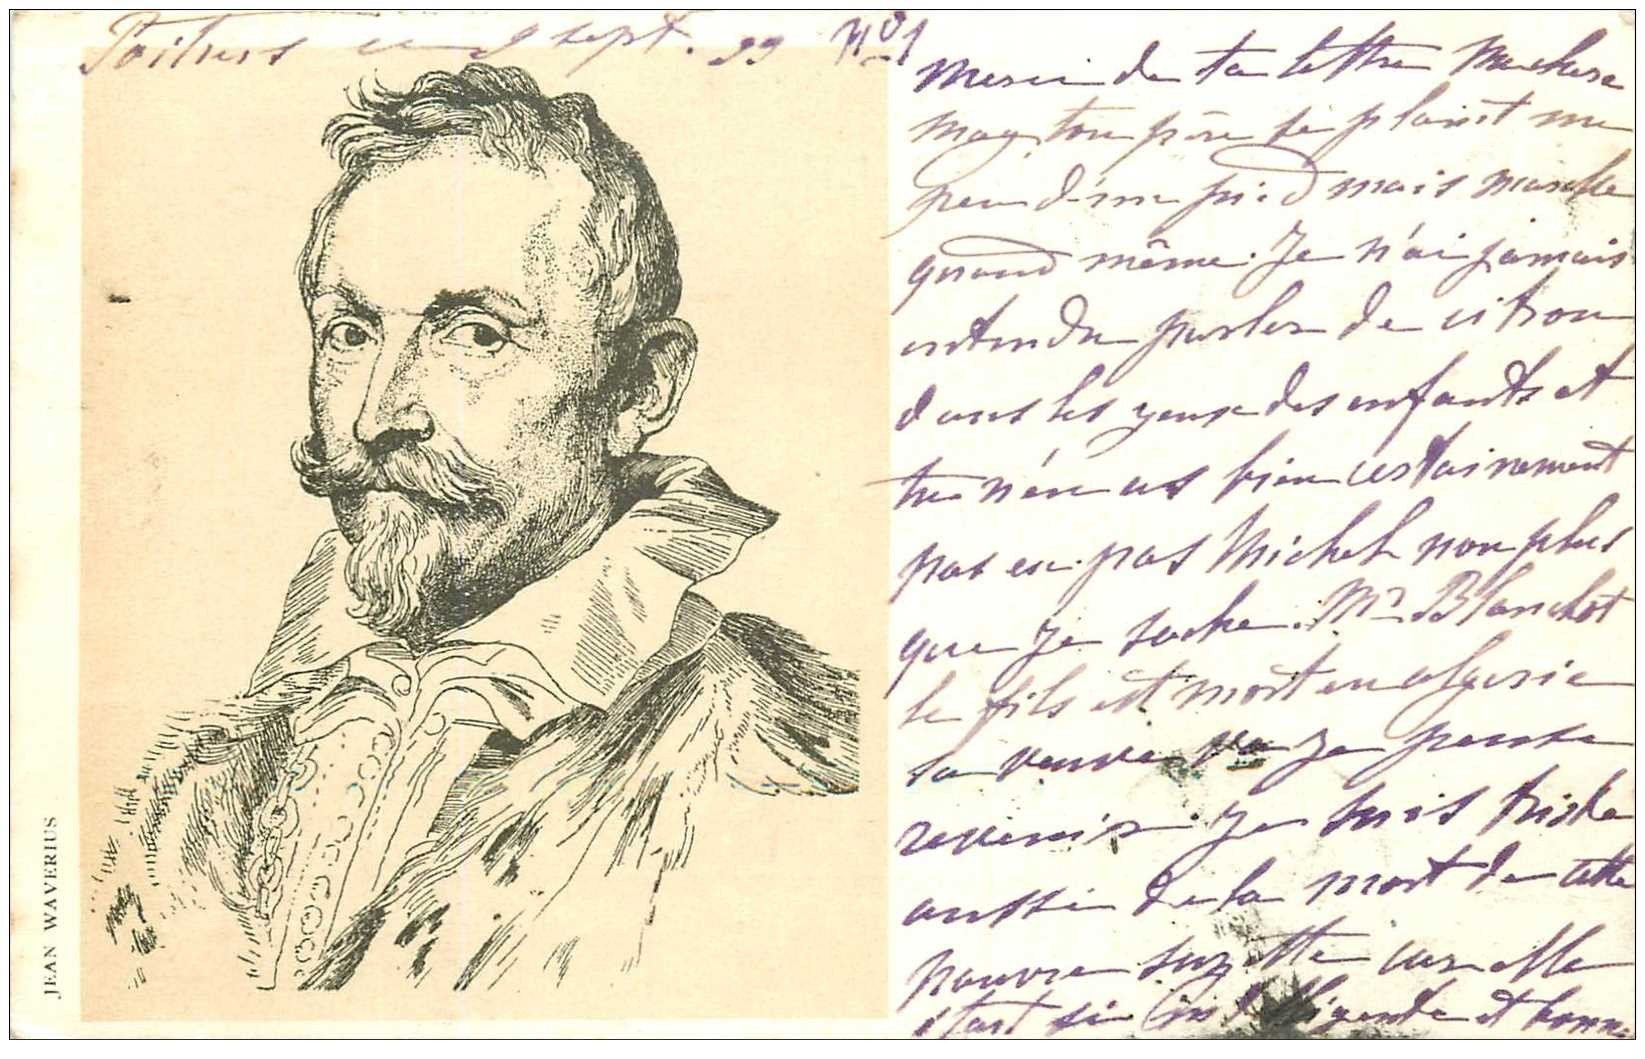 Poitiers 8 sept. 99 No 1
merci de ta lettre ma chère
mag ton père se plaint un
peu d'un pied mais marche
quand même. Je n'ai jamais
entendu parler de citron
dans les yeux des enfants et
tu n'en as bien certainement
pas eu. pas Michel non plus
que je sache. Mr Blanchot
le fils est mort en algerie
sa veuve va je pense
revenir. je suis triste
aussi de la mort de cette
pauvre suzette car elle
était si intelligente et bonne
JEAN WAVERIUS